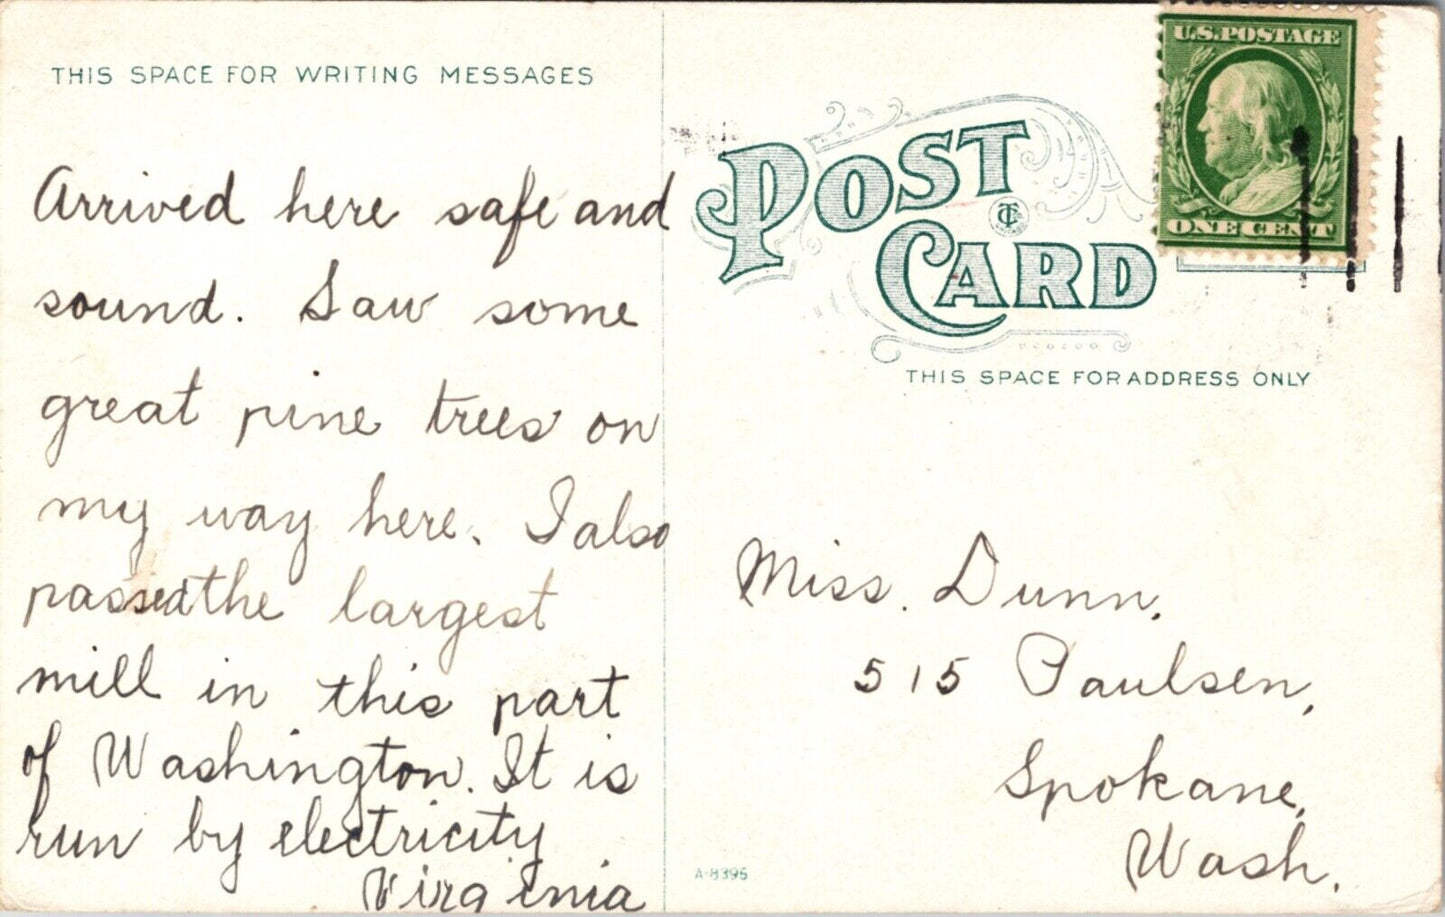 THIS SPACE FOR WRITING MESSAGES
Arrived here safe and
sound. Saw some
great pine trees on
my way here. I also
passed the largest
mill in this part
of Washington. It is
run by electricity
Virginia
U.S. POSTAGE
ONE CENT
POST
CARD
THIS SPACE FOR ADDRESS ONLY
Miss. Dunn,
515 Paulsen,
Spokane,
Wash.
A-8395